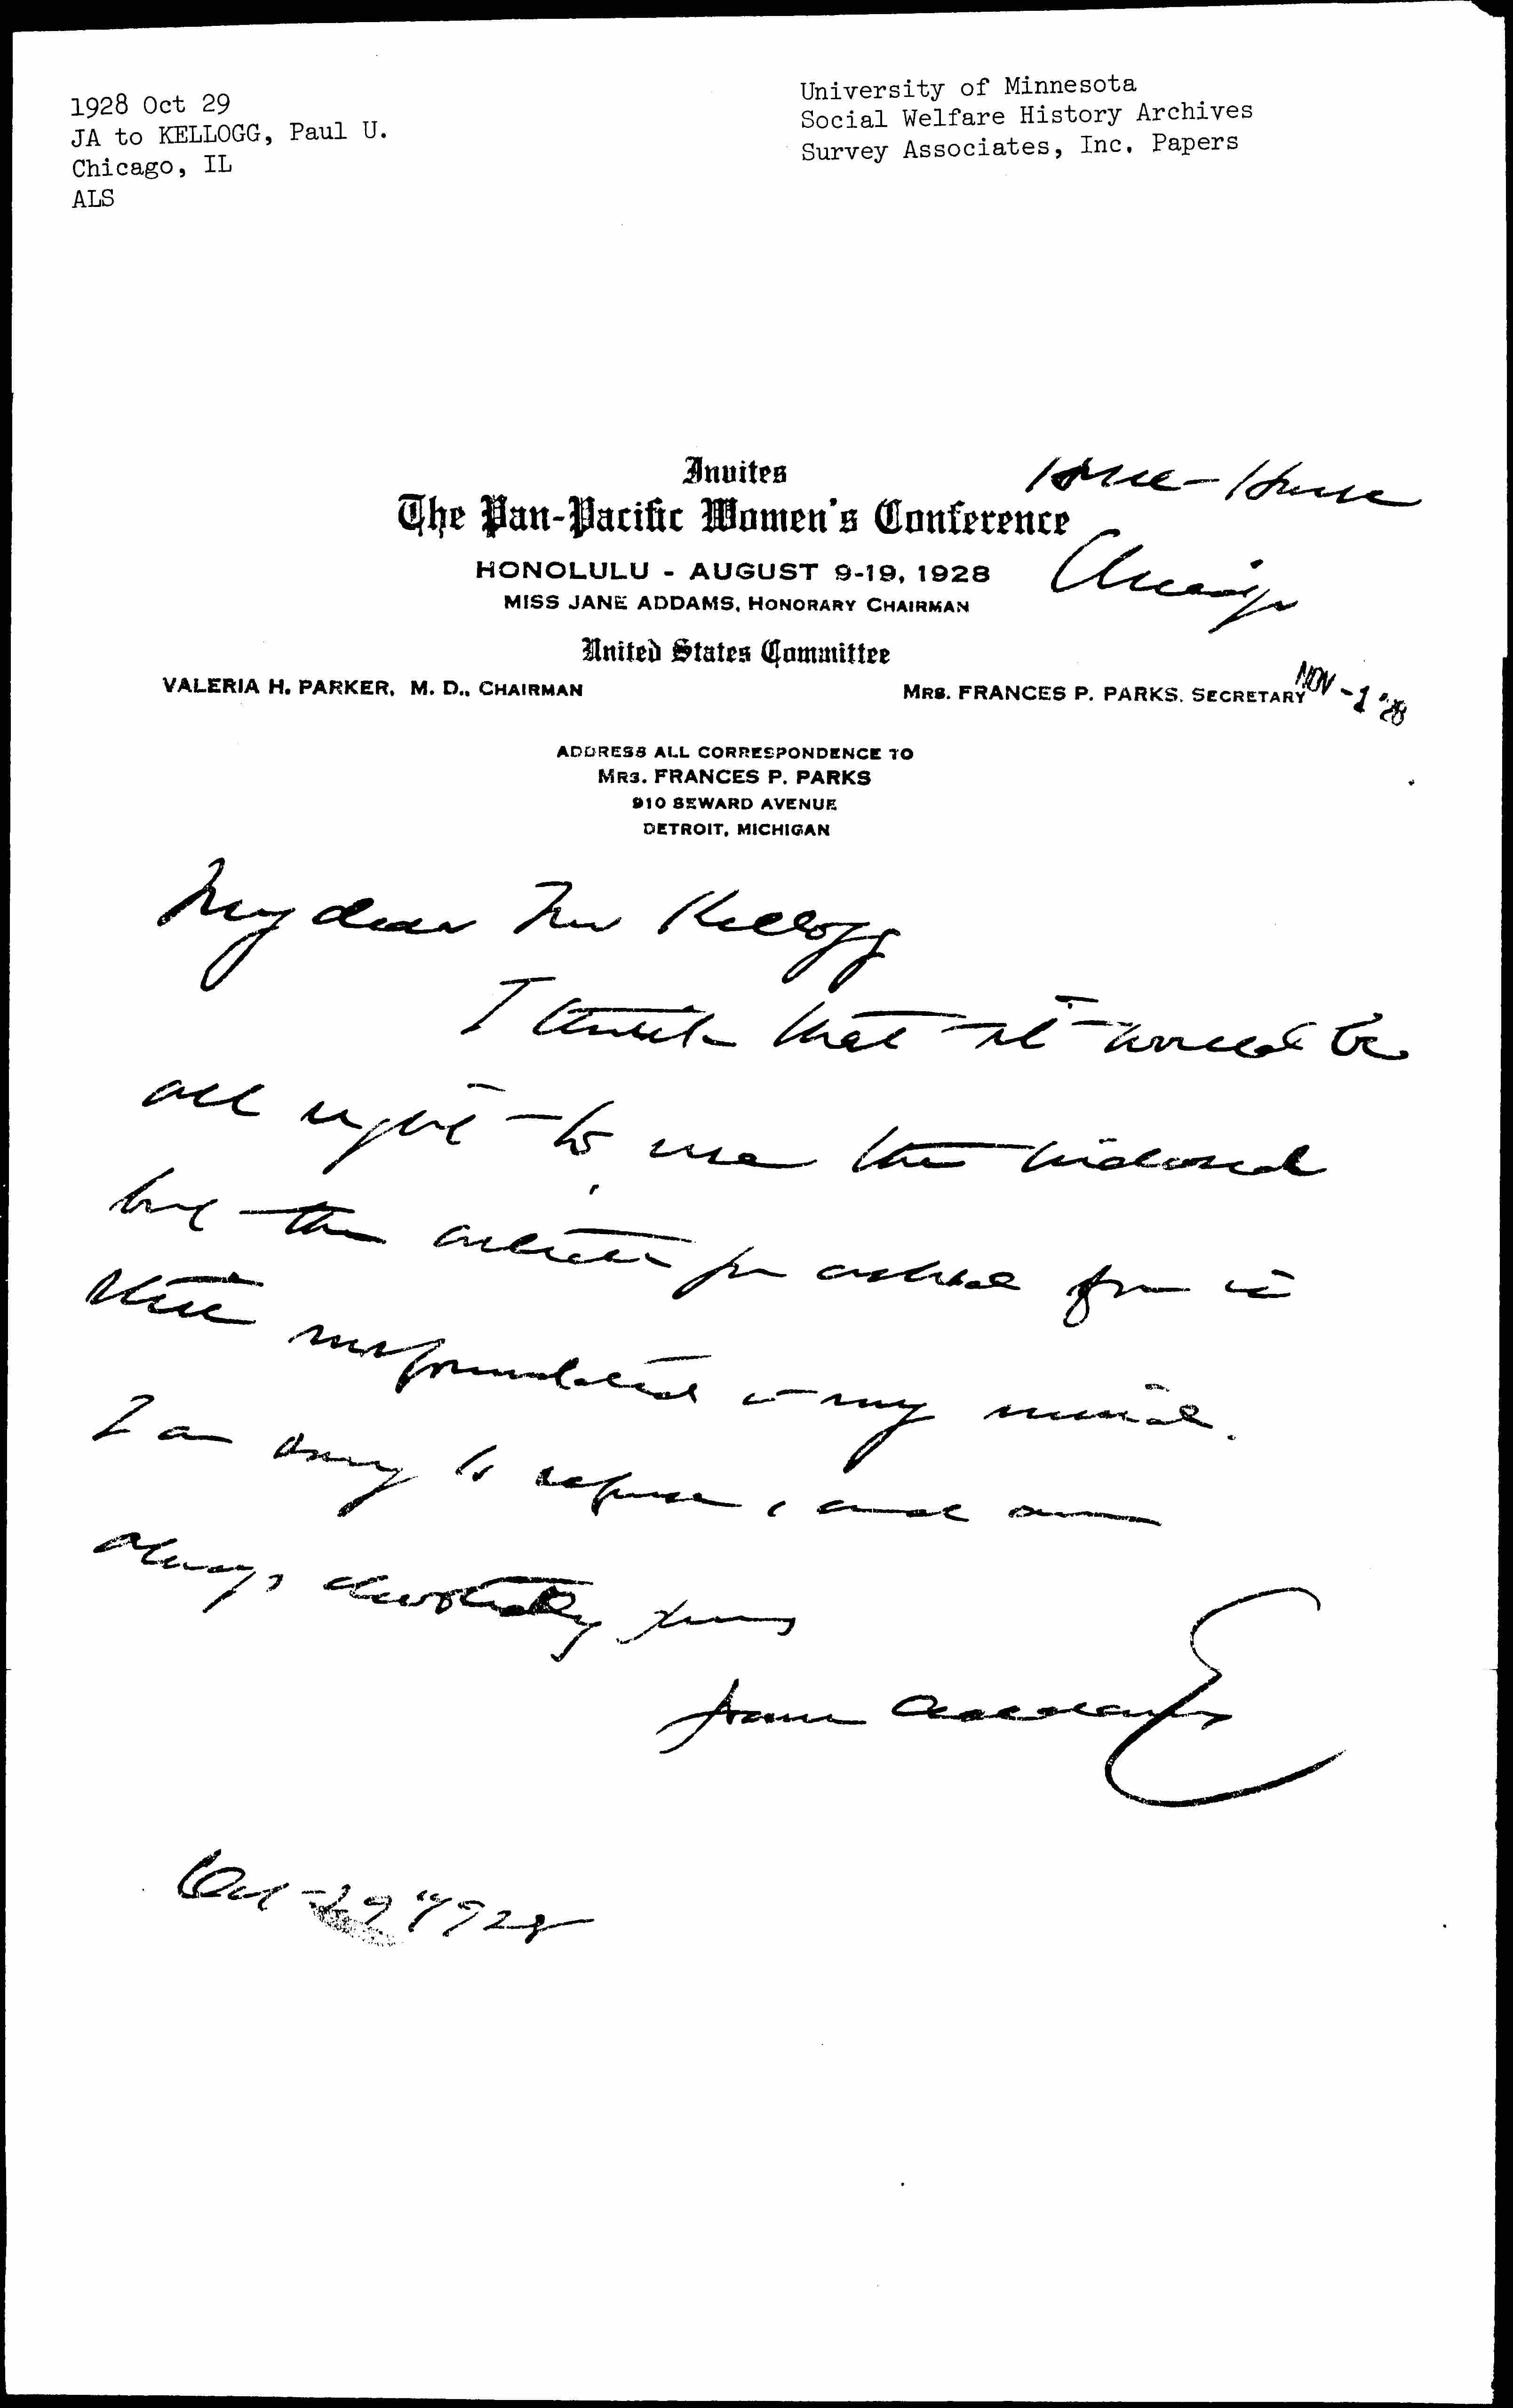 1928 Oct 29
JA to KELLOGG, Paul U.
Chicago, IL
ALS
University of Minnesota
Social Welfare History Archives
Survey Associates, Inc. Papers
Invites
The Pan-Pacific Women's Conference
HONOLULU - AUGUST 9-19, 1928
MISS JANE ADDAMS, HONORARY CHAIRMAN
Hull-House
Chicago
United States Committee
VALERIA H. PARKER, M. D., CHAIRMAN
MRS. FRANCES P. PARKS, SECRETARY
NOV -1 '28
ADDRESS ALL CORRESPONDENCE TO
MRS. FRANCES P. PARKS
910 SEWARD AVENUE
DETROIT, MICHIGAN
My dear Mr Kellogg
I think that it would be
all right to use the inclosed
but the article you asked for is
still in my mind.
I am sorry to refuse, and am
always devotedly yours
Jane Addams
Oct 29" 1928